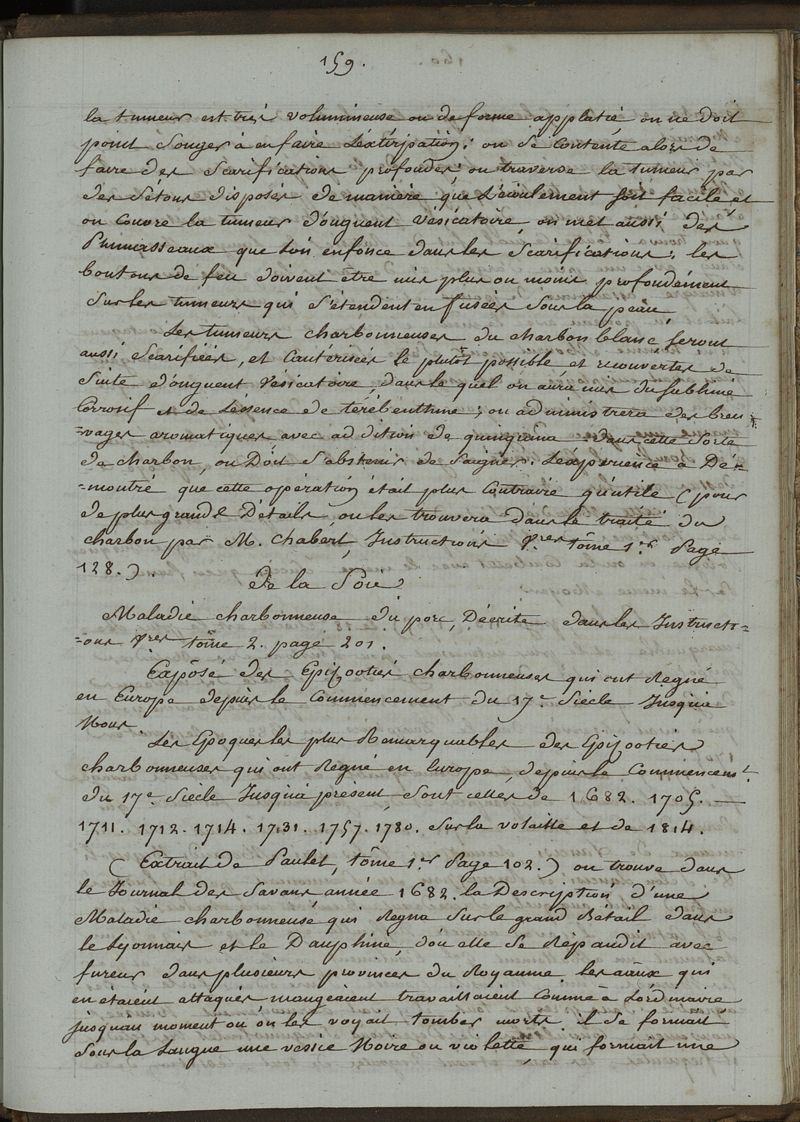 159.
la tumeur est très volumineuse ou de forme applatie, on ne doit
point songer à en faire l'extirpation; on se contente alors de
faire des scarifications profondes; on traverse la tumeur par
des sétons disposés de manière que l'écoulement soit facile et
on couvre la tumeur d'onguent vésicatoire, on met aussi des
Plumasseaux que l'on enfonce dans les scarifications; les
boutons de feu doivent être mis plus ou moins profondément
sur les tumeurs qui s'étendent en fusées sous la peau
Les tumeurs charbonneuses du charbon blanc seront
aussi scarifiées, et cautérisées le plutôt possible et recouvertes de
suite d'onguent vésicatoire, dans le quel on aura mis du sublimé
corrosif et de l'essence de térébenthine; on administrera des breu
=vages aromatiques avec addition de quinquina - dans cette sorte
de charbon, on Doit s'abstenir de saigner; l'expérience a Dé=
=montré que cette opération était plus contraire qu'utile (pour
de plus grands Détails, on les trouvera dans le traité du
charbon par M. Chabert, Instructions v.res tôme 1.er Page
128.).
De la Soie
Maladie charbonneuse du porc, Décrite dans les Instructi=
=ons v.res tôme 2. page 201.
Exposé des Epizooties charbonneuses qui ont Regné
en Europe depuis le Commencement du 17.e Siècle Jusqu'à
Nous.
Les Epoques les plus Remarquables des Epizooties
charbonneuses qui ont Regné en Europe, depuis le Commencem.t
du 17.e Siècle Jusqu'à présent, sont celles de 1682. 1705. —
1711. 1712. 1714. 1731. 1757. 1780. sur la volaille et de 1814.
(Extrait de Paulet, tôme 1.er Page 102.) on trouve dans
le Journal des Savans année 1682. la Description d'une
Maladie charbonneuse qui Regna sur le grand Bétail dans
le Lyonnais et le Dauphiné, d'où elle se Répandit avec
fureur dans plusieurs provinces du Royaume. les aäux qui
en étaient attaqués mangeaient travaillaient Comme à L'ordinaire
jusqu'au moment où on les voyait tomber morts. il se formait
sous la Langue une vessie Noire ou violette, qui formait une